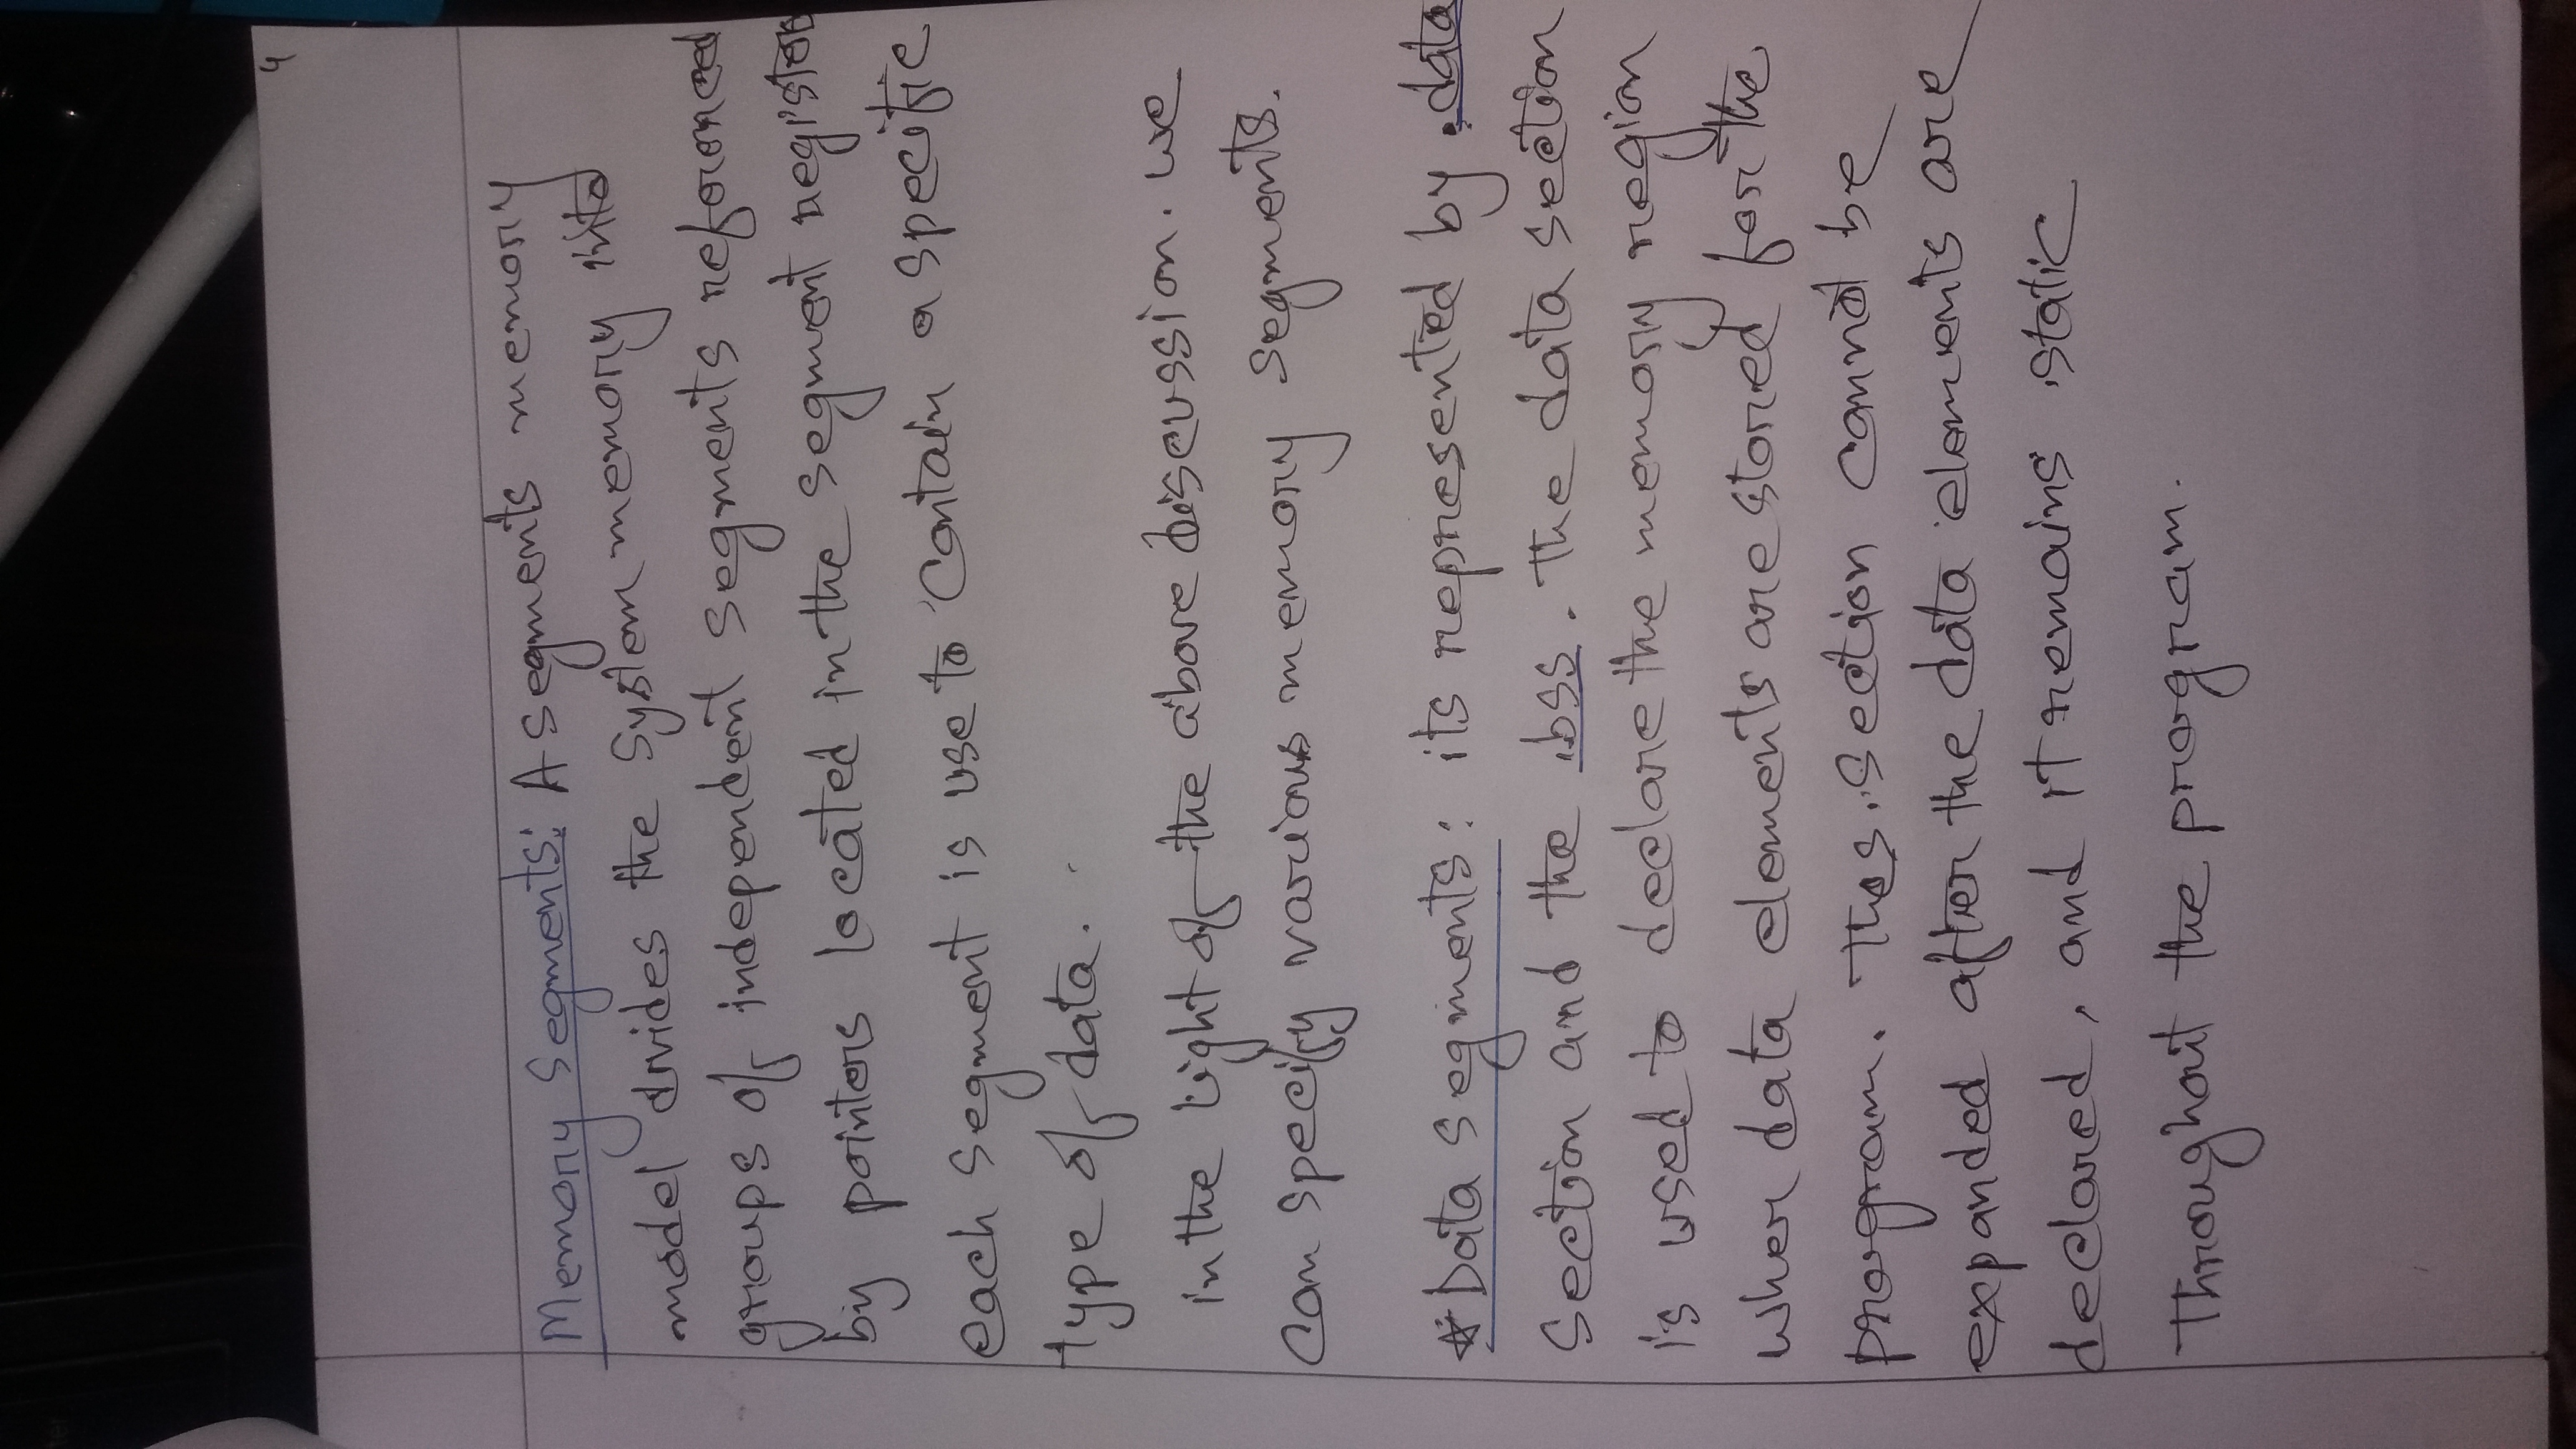 4
Memory Segments: A segments memory
model divides the system memory into
groups of independent segments referenced
by pointers located in the segment registers
each segment is use to contain a specific
type of data.
in the light of the above discussion. we
can specify various memory segments.
*Data segments: its represented by .data
section and the .bss. The data section
is used to declare the memory region
wher data elements are stored for the
program. This section cannot be
expanded after the data elements are
declared, and it remains static
Throughout the program.